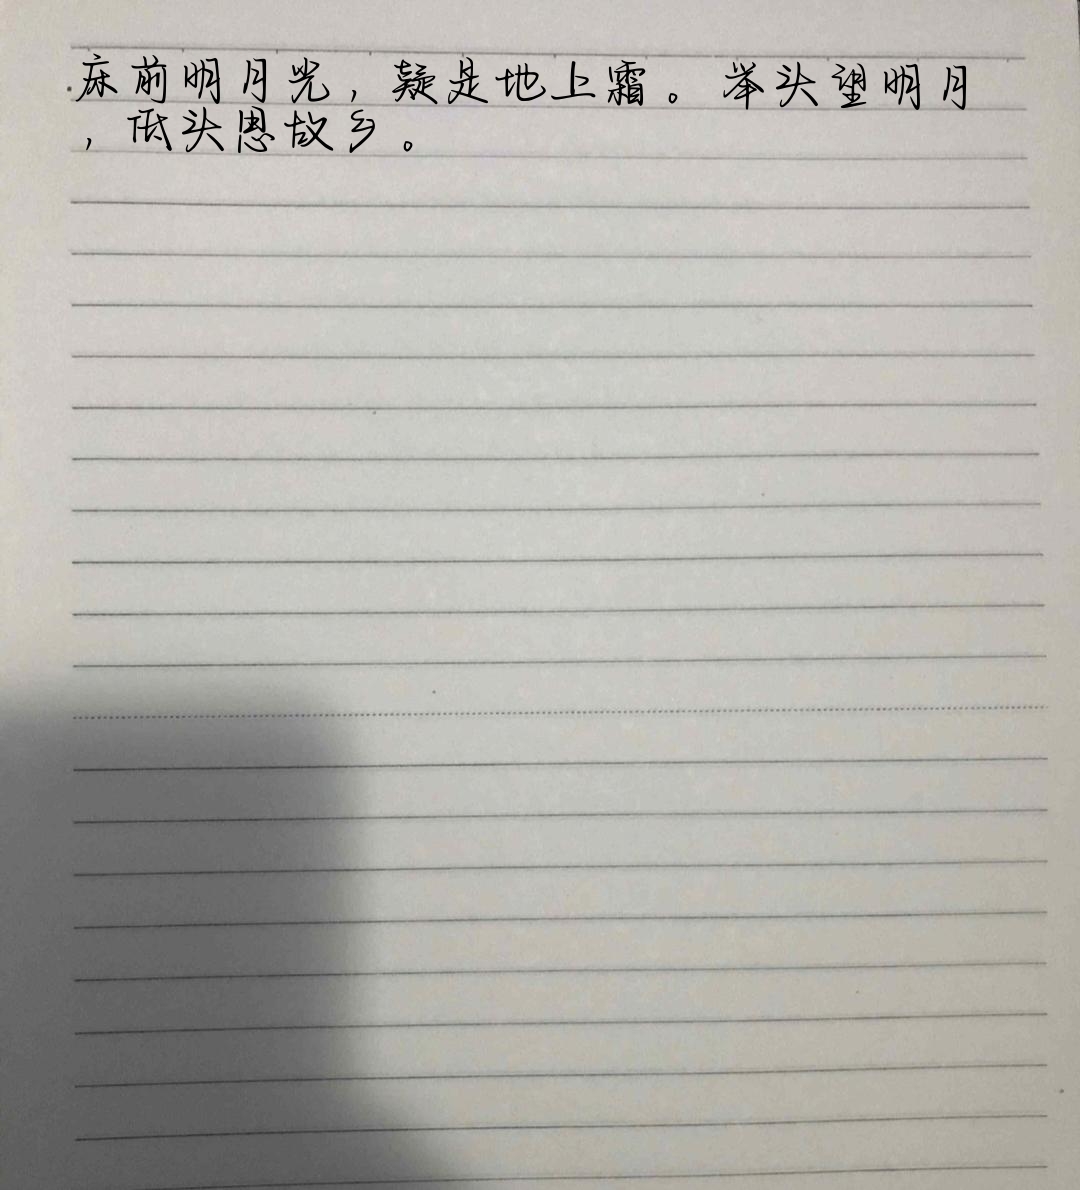 床前明月光，疑是地上霜。举头望明月
，低头思故乡。